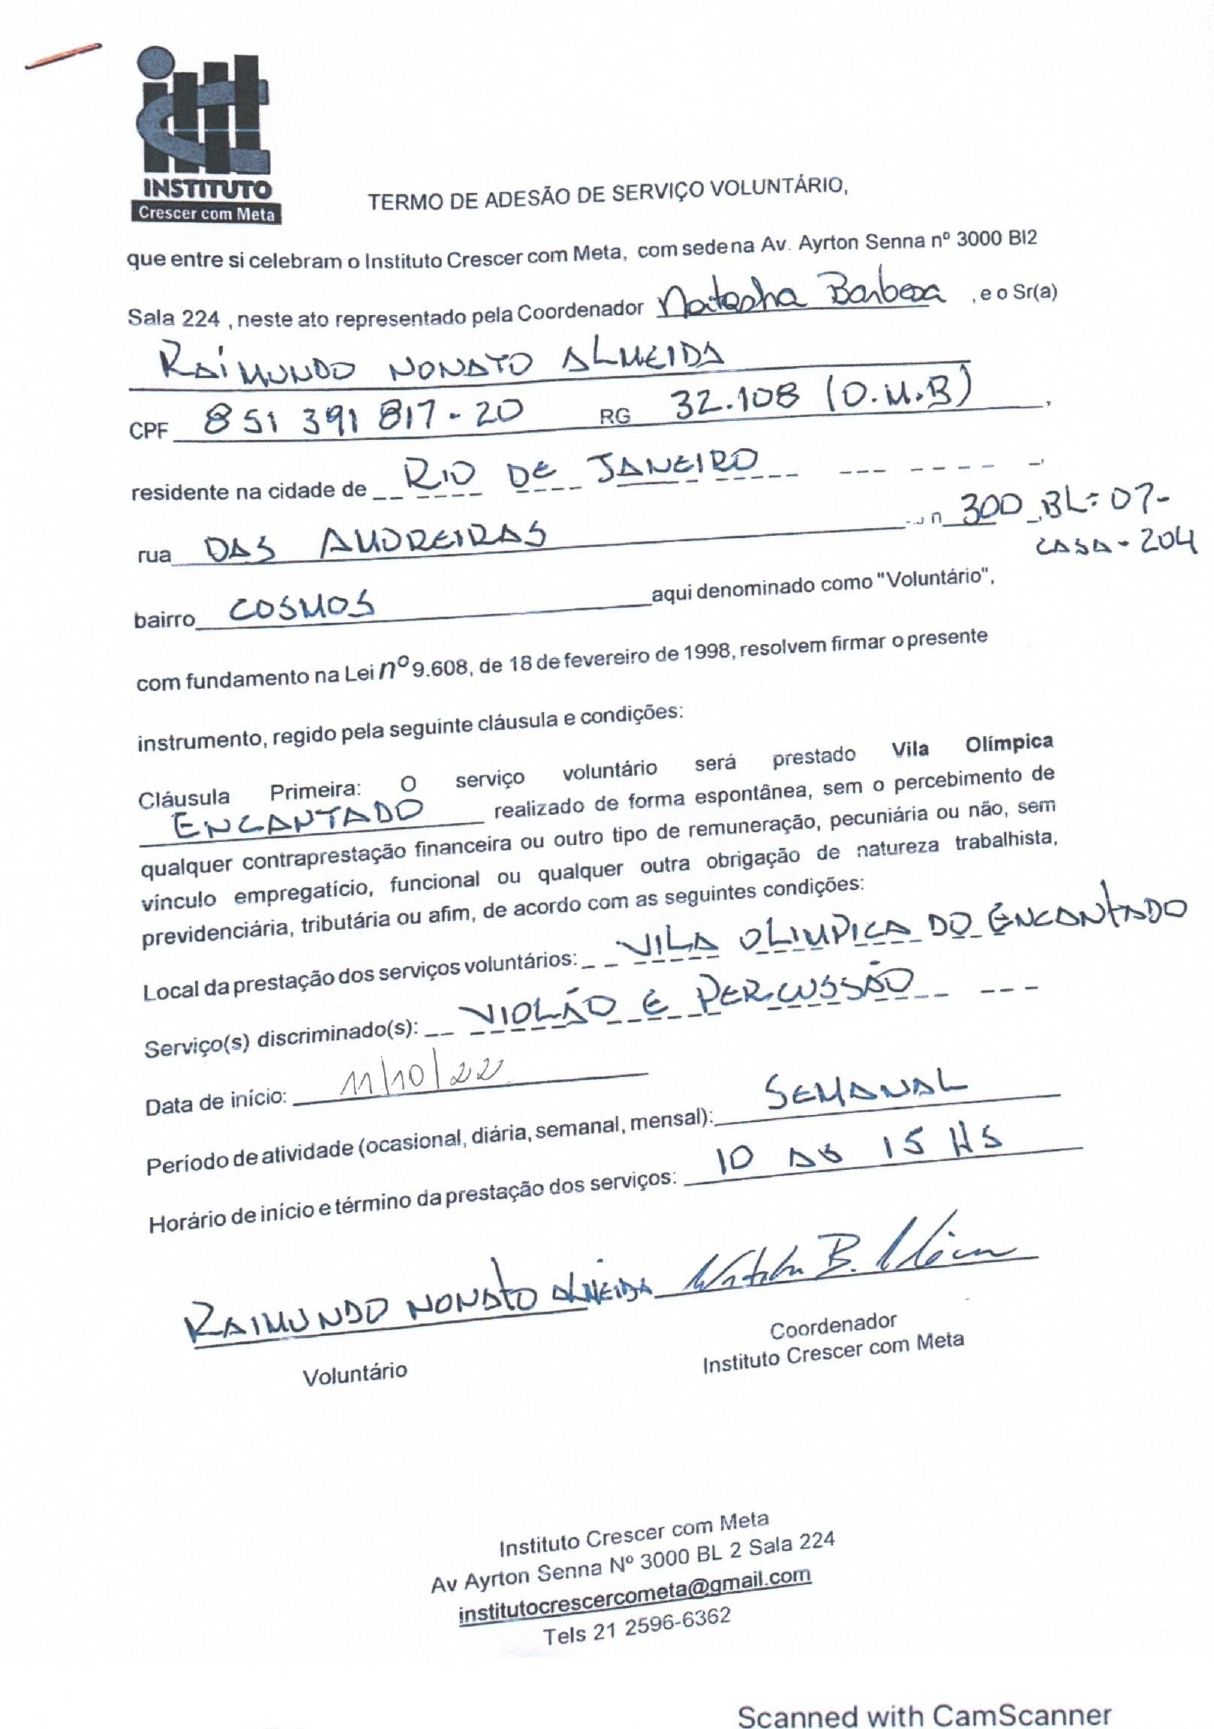 INSTITUTO
Crescer com Meta
TERMO DE ADESÃO DE SERVIÇO VOLUNTÁRIO,
que entre si celebram o Instituto Crescer com Meta, com sede na Av. Ayrton Senna nº 3000 Bl2
Sala 224 , neste ato representado pela Coordenador Natasha Barbosa , e o Sr(a)
RAIMUNDO NONATO ALMEIDA
CPF 851 391 817-20 RG 32.108 (O.M.B) ,
residente na cidade de RIO DE JANEIRO
rua DAS AMOREIRAS n 300 BL: 07-
CASA - 204
bairro COSMOS aqui denominado como "Voluntário",
com fundamento na Lei nº 9.608, de 18 de fevereiro de 1998, resolvem firmar o presente
instrumento, regido pela seguinte cláusula e condições:
Cláusula Primeira: O serviço voluntário será prestado Vila Olímpica
ENCANTADO realizado de forma espontânea, sem o percebimento de
qualquer contraprestação financeira ou outro tipo de remuneração, pecuniária ou não, sem
vínculo empregatício, funcional ou qualquer outra obrigação de natureza trabalhista,
previdenciária, tributária ou afim, de acordo com as seguintes condições:
Local da prestação dos serviços voluntários: VILA OLIMPICA DO ENCANTADO
Serviço(s) discriminado(s): VIOLÃO E PERCUSSÃO
Data de início: 11/10/22
Período de atividade (ocasional, diária, semanal, mensal): SEMANAL
Horário de início e término da prestação dos serviços: 10 AS 15 HS
RAIMUNDO NONATO ALMEIDA Natasha B.
Voluntário
Coordenador
Instituto Crescer com Meta
Instituto Crescer com Meta
Av Ayrton Senna Nº 3000 BL 2 Sala 224
institutocrescercometa@gmail.com
Tels 21 2596-6362
Scanned with CamScanner